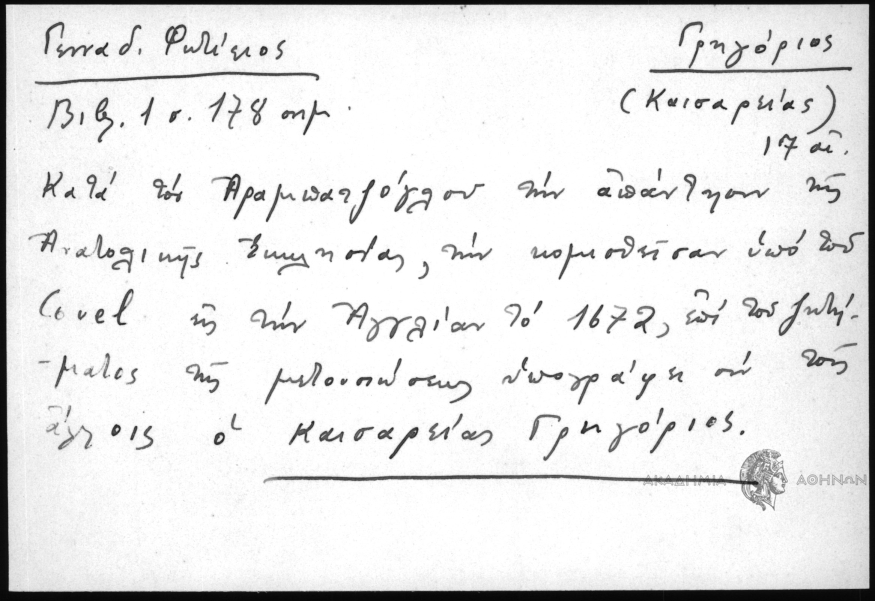 Γενναδ. Φωτίειος
Γρηγόριος
Βιβλ. 1 σ. 178 σημ.
(Καισαρείας)
17 αἰ.
Κατά τόν Ἀραμπατζόγλου τήν ἀπάντησιν τῆς
Ἀνατολικῆς Ἐκκλησίας, τήν κομισθεῖσαν ὑπό τοῦ
Covel εἰς τήν Ἀγγλίαν τό 1672, ἐπί τοῦ ζητή-
-ματος τῆς μετουσιώσεως ὑπογράφει σύν τοῖς
ἄλλοις ὁ Καισαρείας Γρηγόριος.
ΑΚΑΔΗΜΙΑ ΑΘΗΝΩΝ